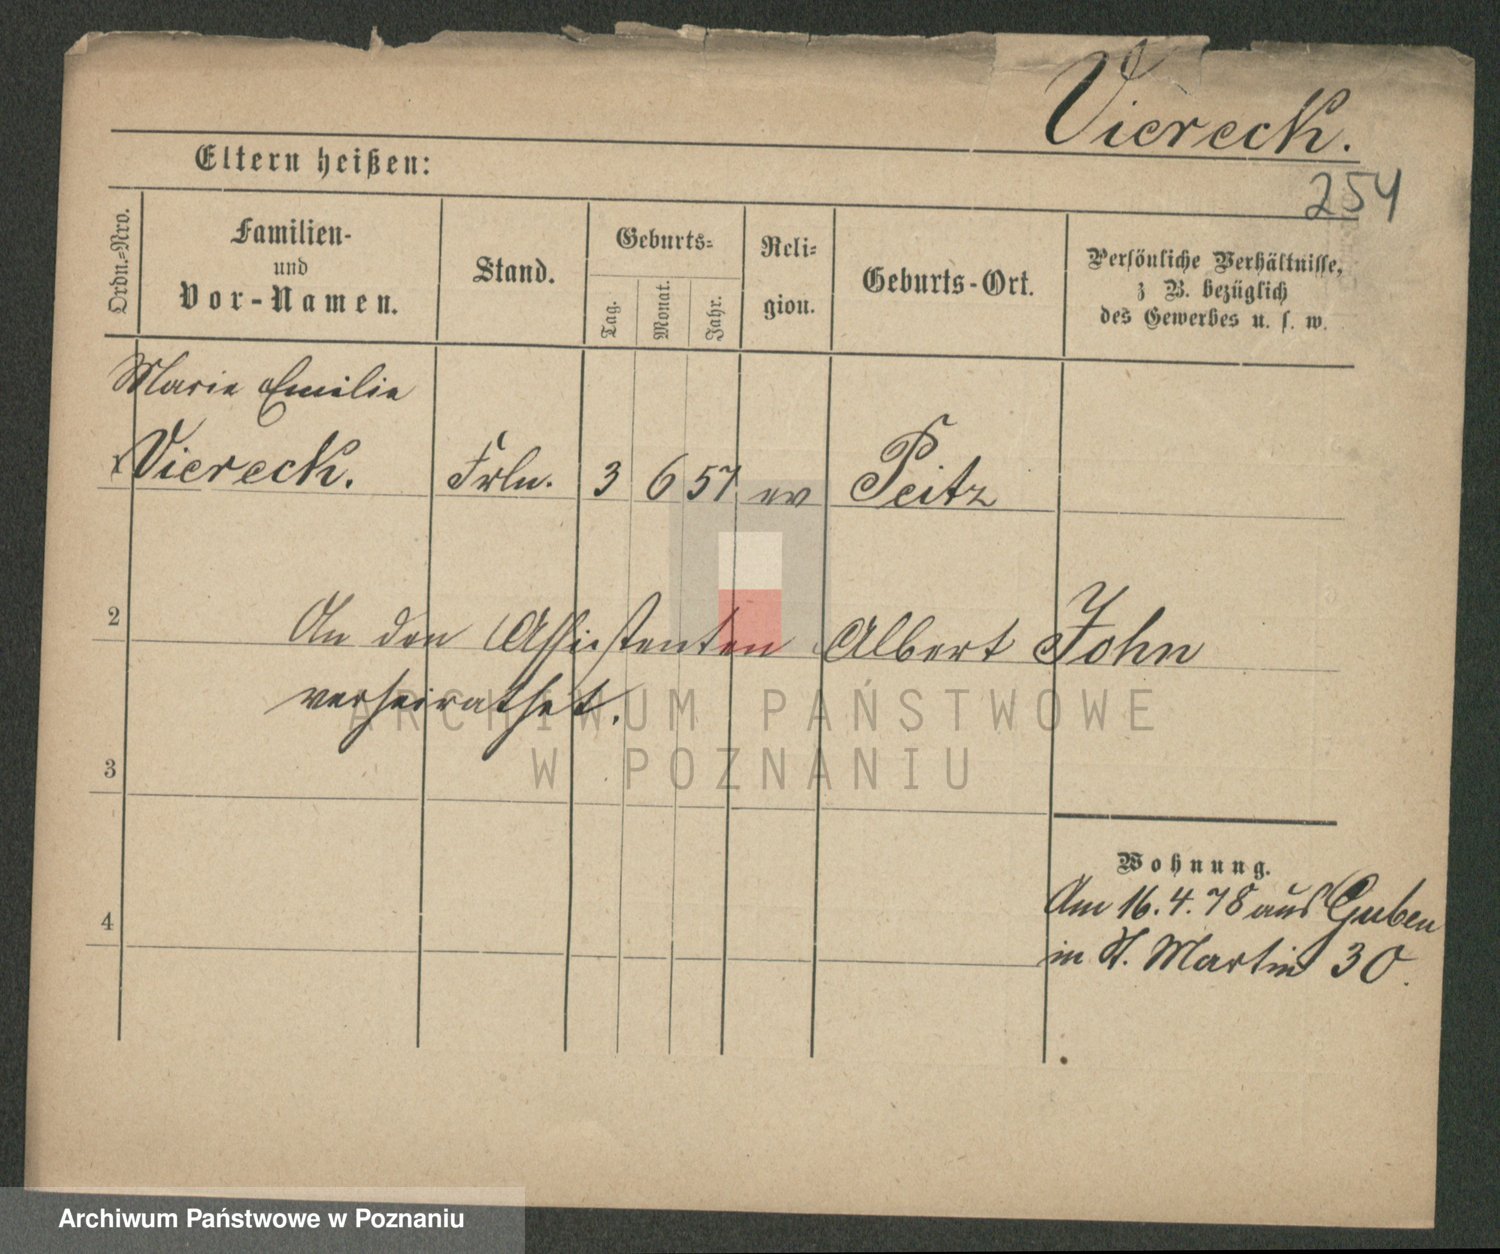 Viereck.
254
Eltern heißen:
Ordn.=Nro.
Familien-
und
Vor-Namen.
Stand.
Geburts=
Tag.
Monat.
Jahr.
Reli=
gion.
Geburts-Ort.
Persönliche Verhältnisse,
z B. bezüglich
des Gewerbes u. s. w.
Marie Emilie
Viereck. Frln. 3 6 57 ev Peitz
2
An den Assistenten Albert John
verheirathet.
3
4
Wohnung.
Am 16. 4. 78 aus Guben
in St. Martin 30.
ARCHIWUM PAŃSTWOWE
W POZNANIU
Archiwum Państwowe w Poznaniu